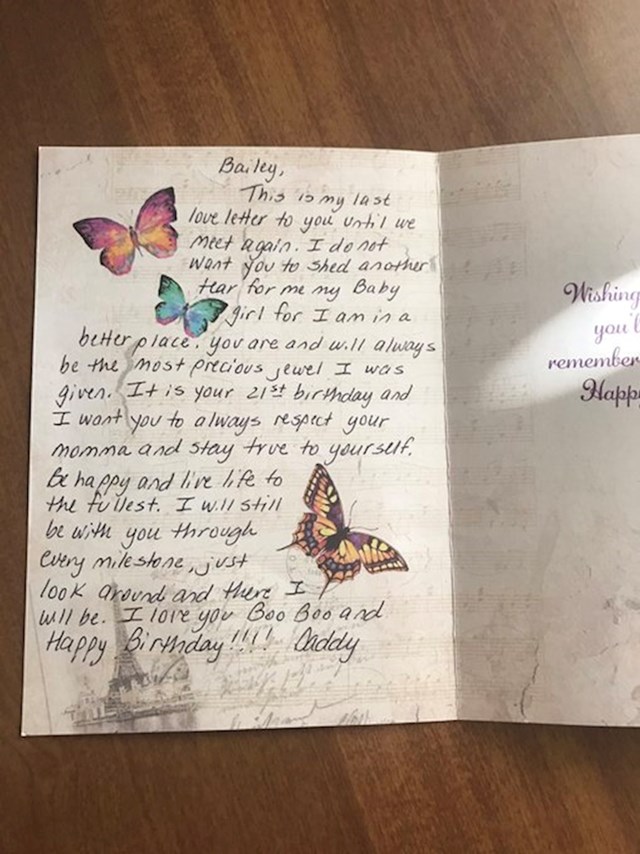 Bailey,
This is my last
love letter to you until we
meet again. I do not
want you to shed another
tear for me my Baby
girl for I am in a
better place. you are and will always
be the most precious jewel I was
given. It is your 21st birthday and
I want you to always respect your
momma and stay true to yourself.
Be happy and live life to
the fullest. I will still
be with you through
every milestone, just
look around and there I
will be. I love you Boo Boo and
Happy Birthday!!!! Daddy
Wishing
you'l
remember
Happ